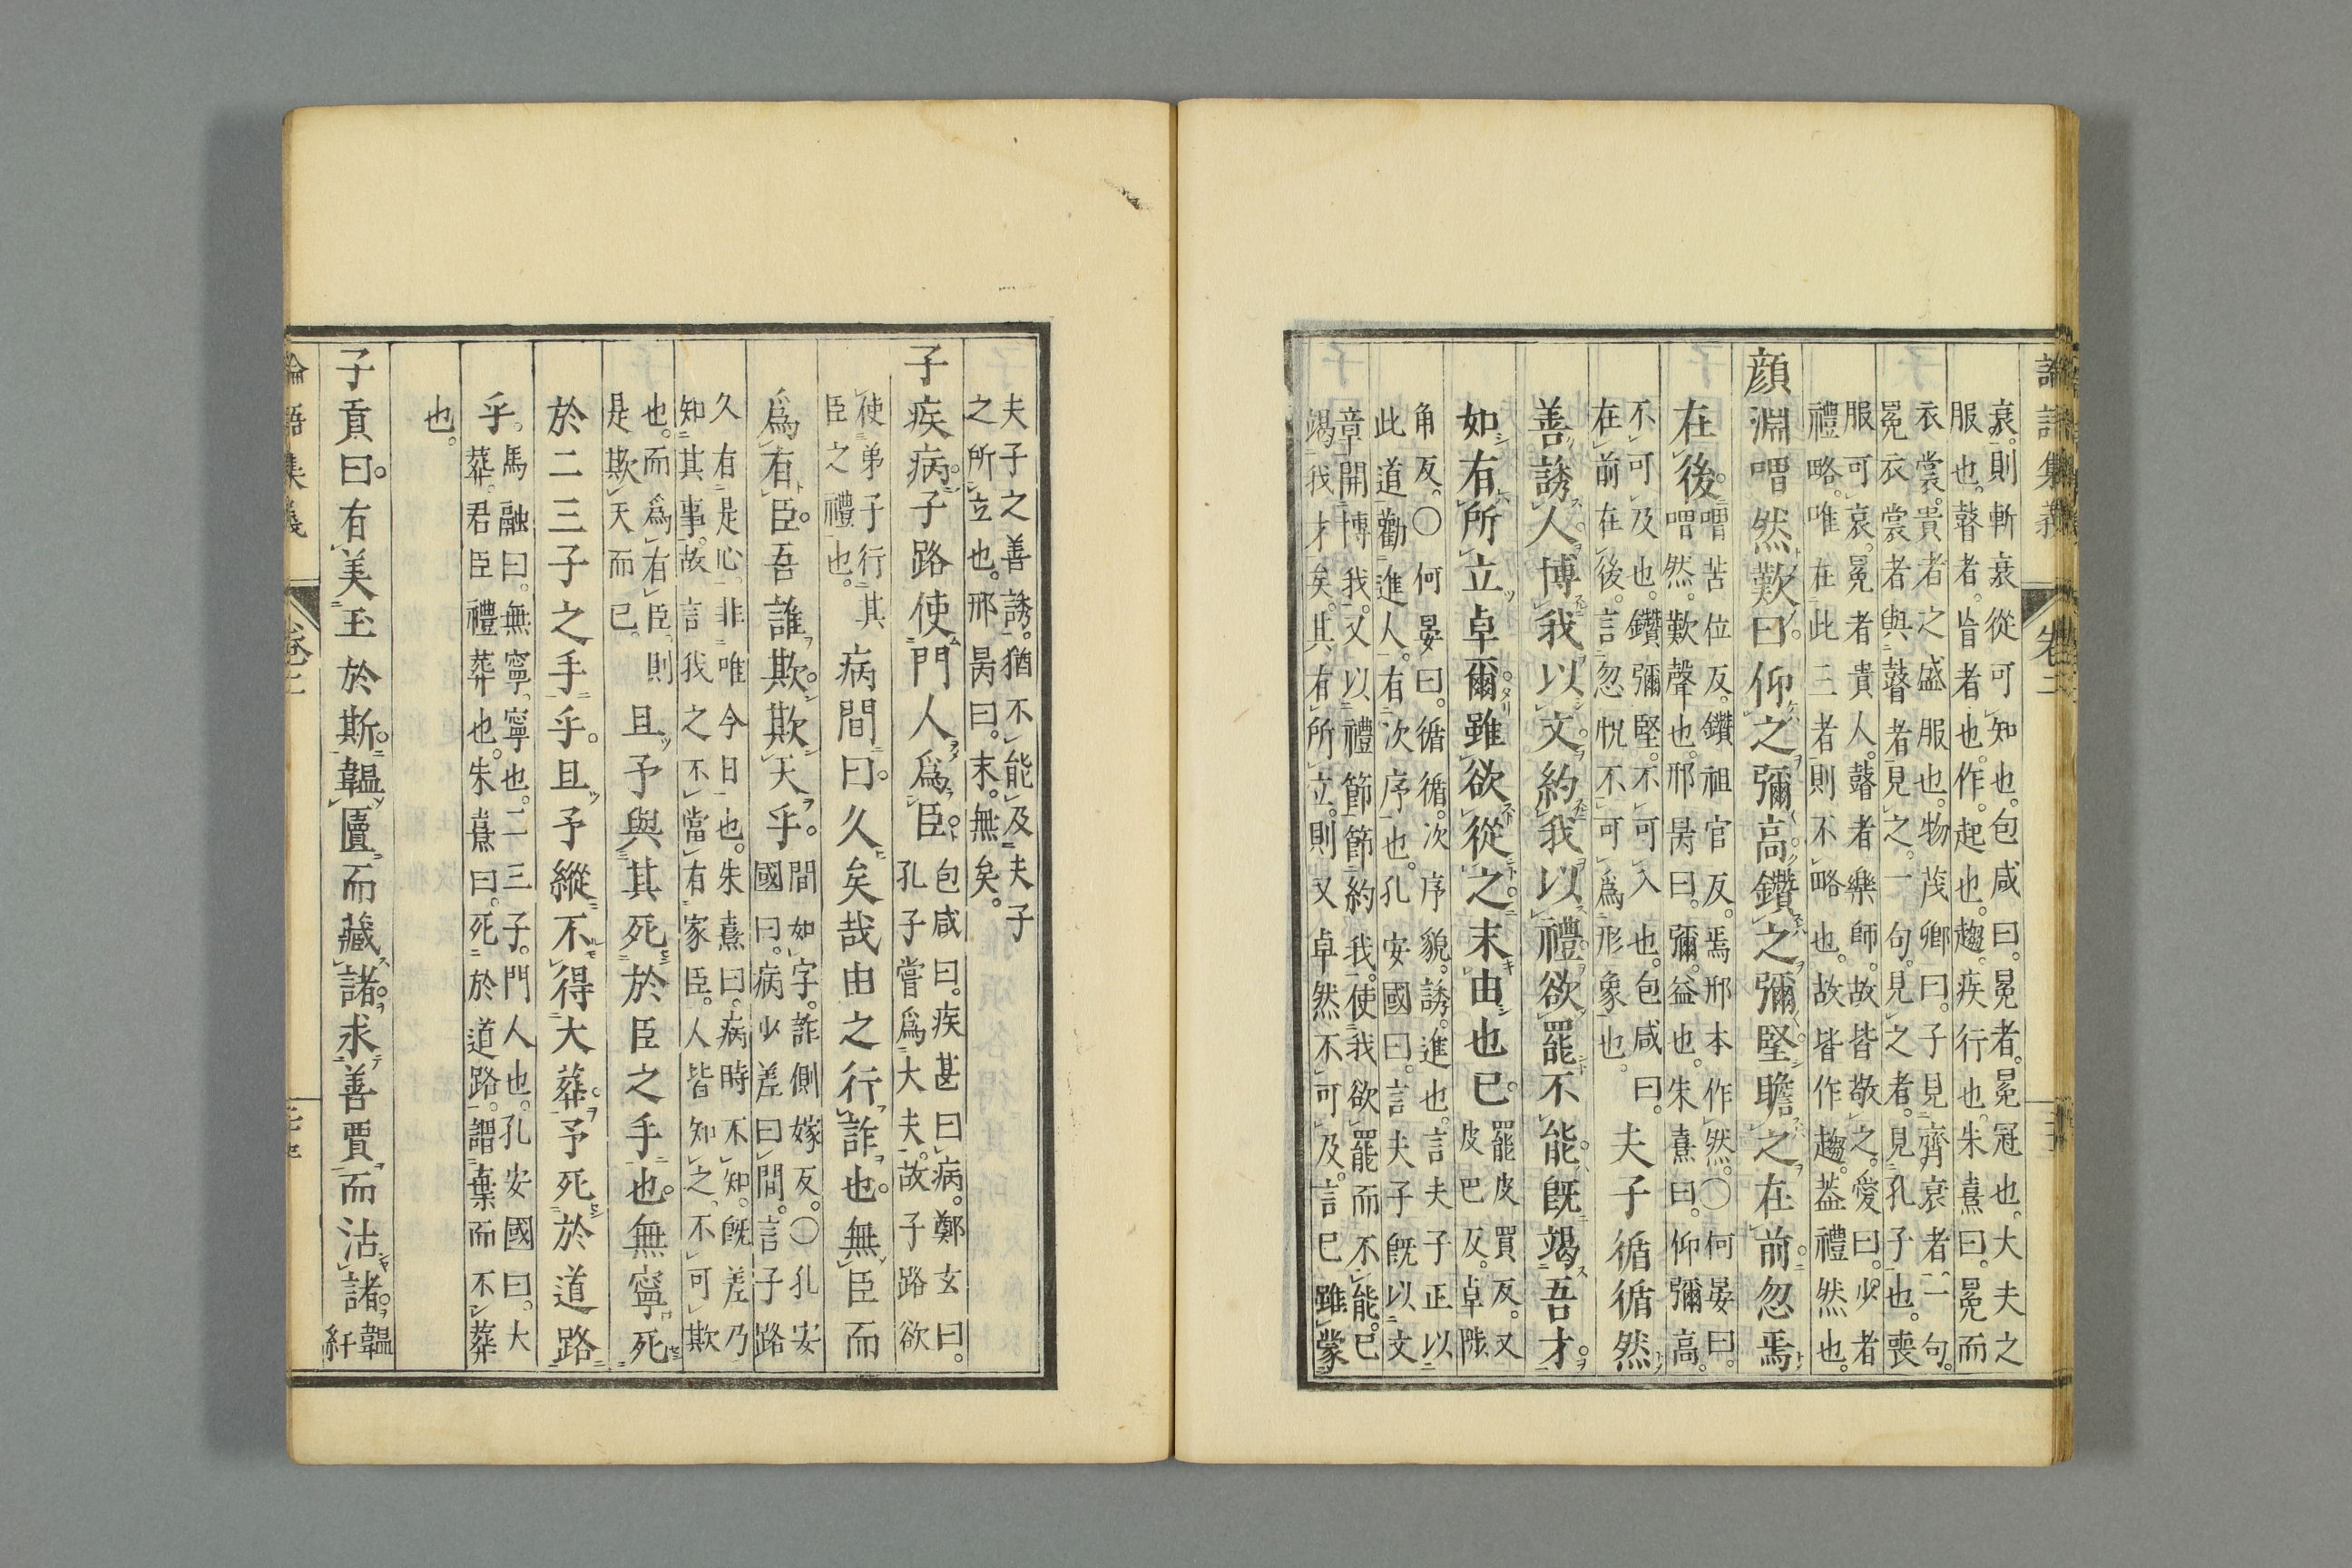 衰。則斬衰從可知也。包咸曰。冕者。冕冠也。大夫之
服也。瞽者。盲者也。作。起也。趨。疾行也。朱熹曰。冕而
衣裳。貴者之盛服也。物茂卿曰。子見齊衰者。一句。
冕衣裳者與瞽者見之。一句。見之者。見孔子也。喪
服可哀。冕者貴人。瞽者樂師。故皆敬之。愛曰。少者
禮略。唯在此三者則不略也。故皆作趨。葢禮然也。
顔淵喟然歎曰。仰之彌高。鑽之彌堅。瞻之在前。忽焉
在後。
喟苦位反。鑽祖官反。焉邢本作然。〇何晏曰。
喟然。歎聲也。邢昺曰。彌。益也。朱熹曰。仰彌高。
不可及也。鑽彌堅。不可入也。包咸曰。
在前在後。言忽怳不可爲形象也。
夫子循循然
善誘人。博我以文。約我以禮。欲罷不能。既竭吾才。
如有所立卓爾。雖欲從之。末由也已。
罷皮買反。又
皮巴反。卓陟
角反。〇何晏曰。循循。次序貌。誘。進也。言夫子正以
此道勸進人。有次序也。孔安國曰。言夫子既以文
章開博我。又以禮節節約我。使我欲罷而不能。已
竭我才矣。其有所立。則又卓然不可及。言已雖蒙
論語集義 卷三
夫子之善誘。猶不能及夫子
之所立也。邢昺曰。末。無矣。
子疾病。子路使門人爲臣。
包咸曰。疾甚曰病。鄭玄曰。
孔子嘗爲大夫。故子路欲
使弟子行其
臣之禮也。
病間曰。久矣哉由之行詐也。無臣而
爲有臣。吾誰欺。欺天乎。
間如字。詐側嫁反。〇孔安
國曰。病少差曰間。言子路
久有是心。非唯今日也。朱熹曰。病時不知。既差乃
知其事。故言我之不當有家臣。人皆知之。不可欺
也。而爲有臣。則
是欺天而已。
且予與其死於臣之手也。無寧死
於二三子之手乎。且予縱不得大葬。予死於道路
乎。
馬融曰。無寧。寧也。二三子。門人也。孔安國曰。大
葬。君臣禮葬也。朱熹曰。死於道路。謂棄而不葬
也。
子貢曰。有美玉於斯。韞匵而藏諸。求善賈而沽諸。
韞
紆
論語集義 卷三